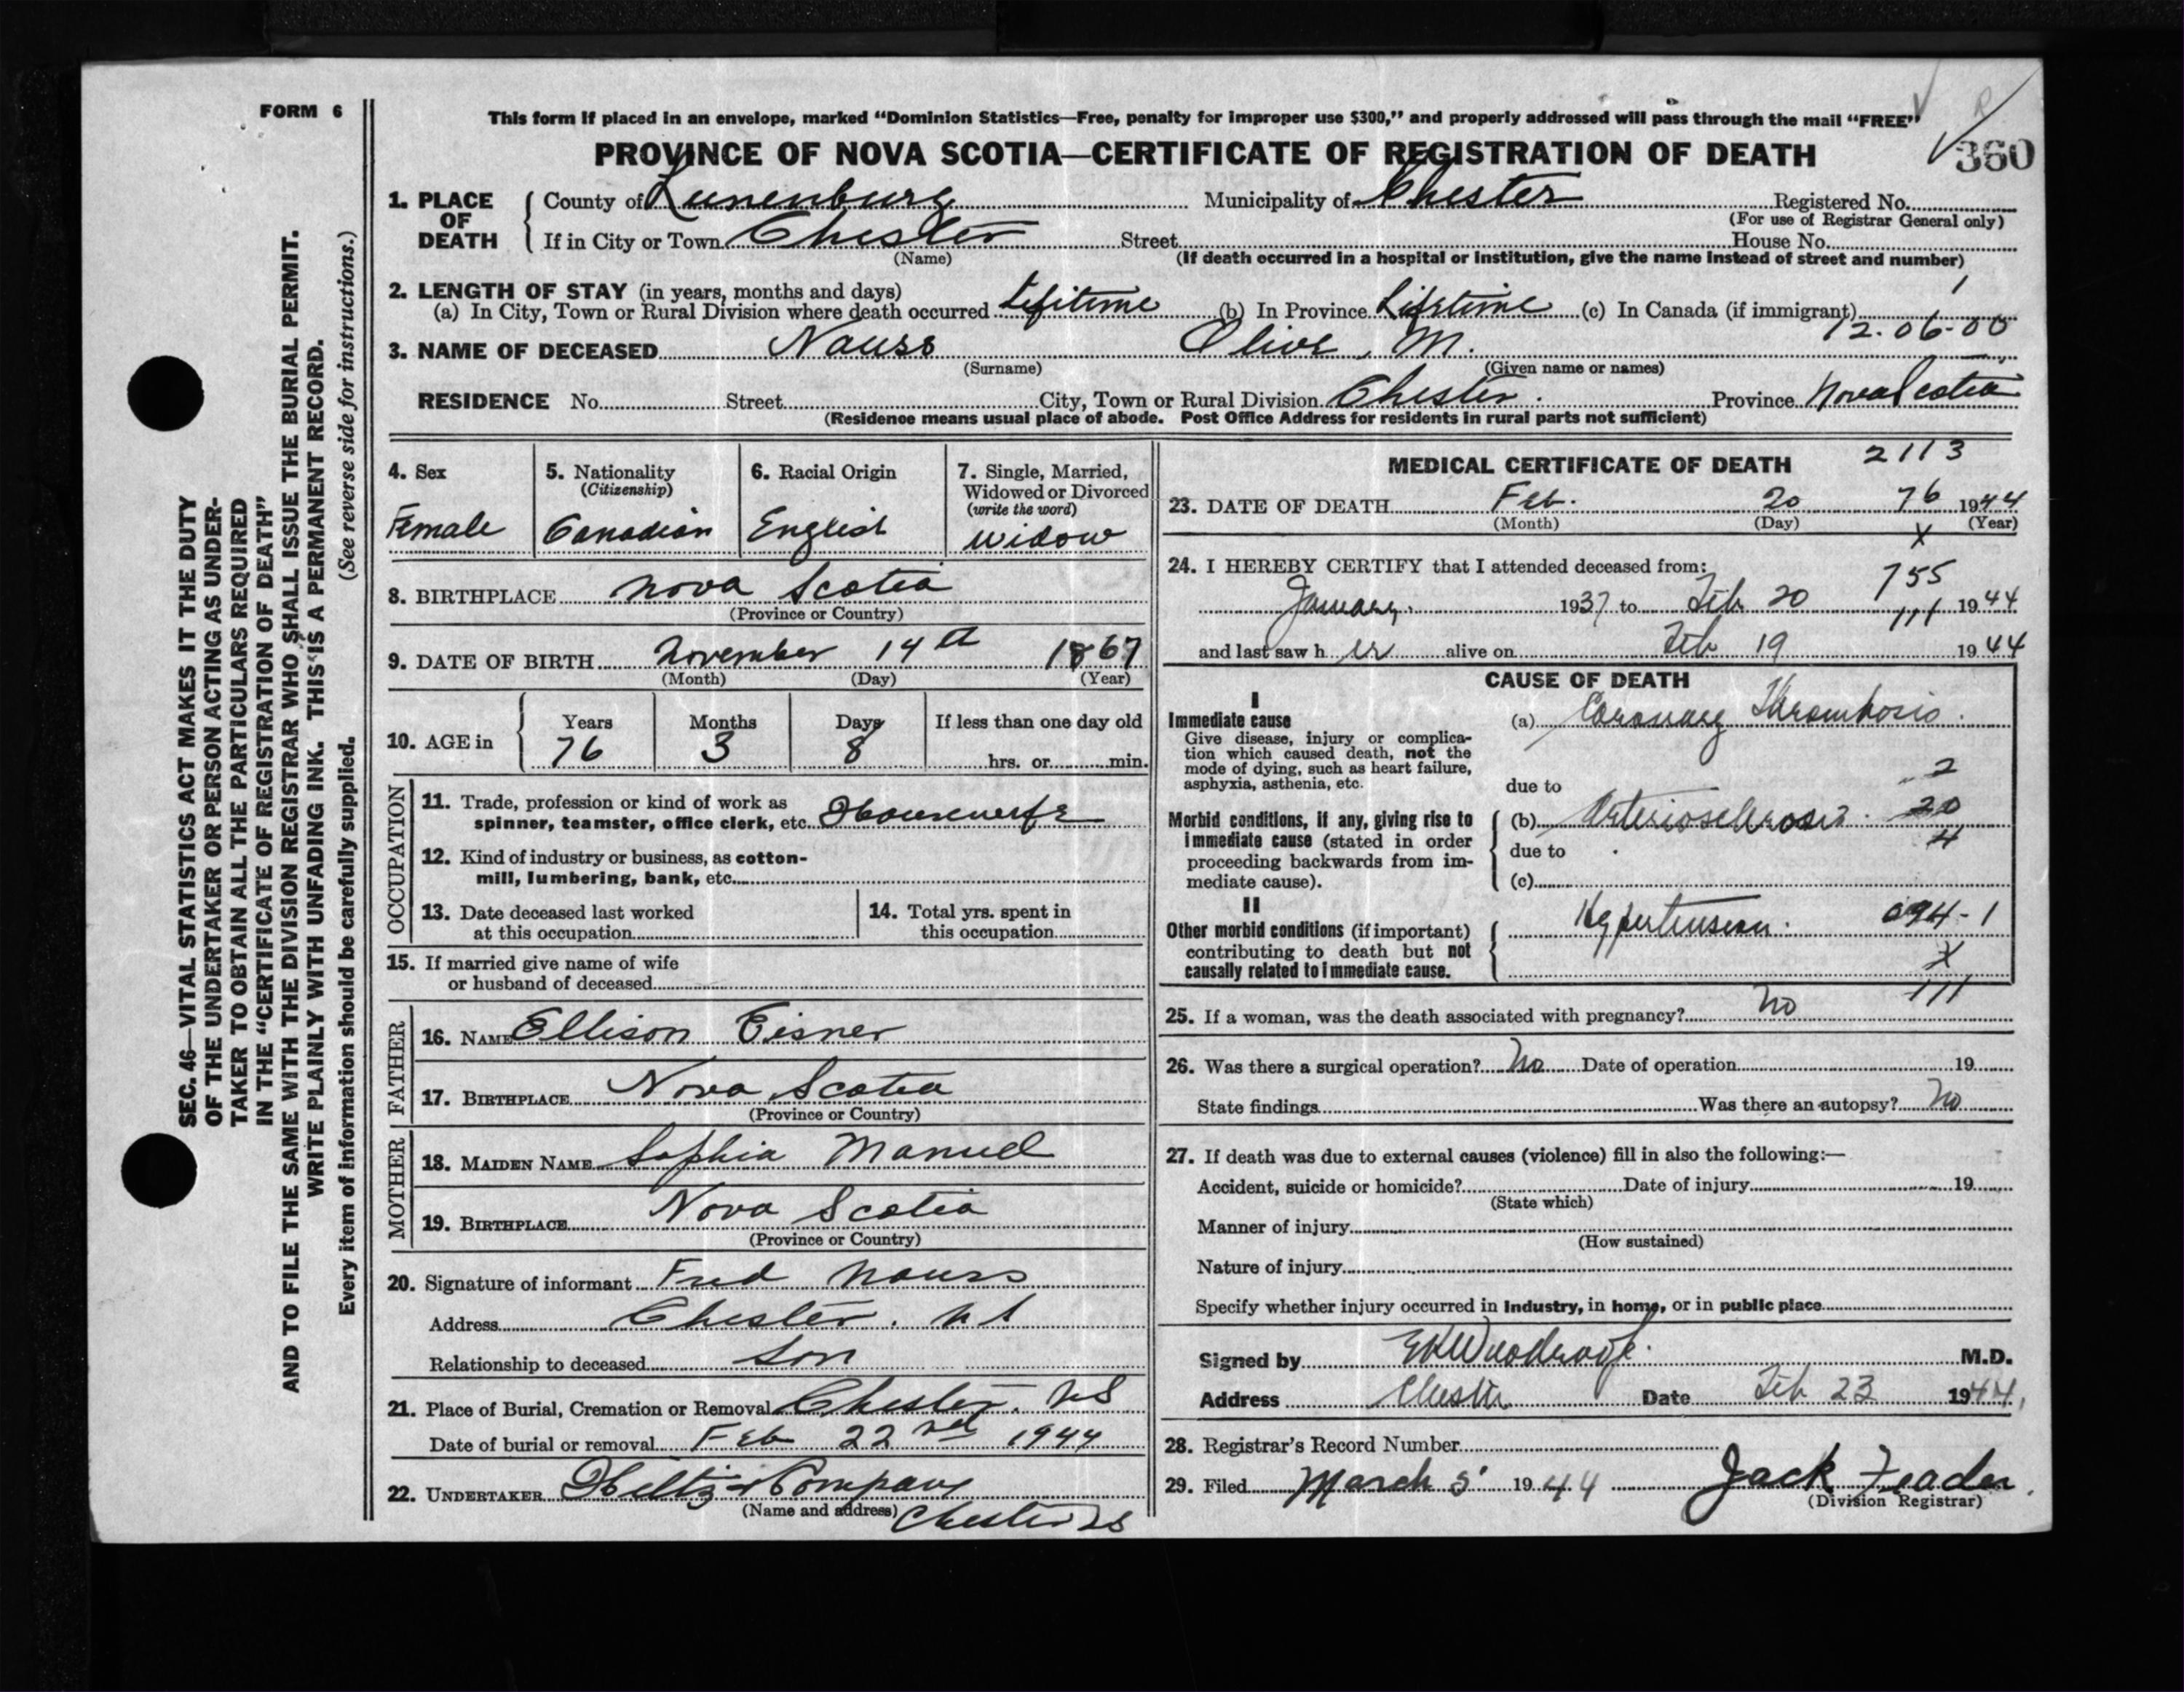 FORM 6
This form if placed in an envelope, marked “Dominion Statistics—Free, penalty for improper use $300,” and properly addressed will pass through the mail “FREE”
PROVINCE OF NOVA SCOTIA—CERTIFICATE OF REGISTRATION OF DEATH
360
1. PLACE OF DEATH { County of Lunenburg Municipality of Chester Registered No.
(For use of Registrar General only)
If in City or Town Chester Street House No.
(Name) (If death occurred in a hospital or institution, give the name instead of street and number)
2. LENGTH OF STAY (in years, months and days)
(a) In City, Town or Rural Division where death occurred Lifitime (b) In Province Lifetime (c) In Canada (if immigrant)
12-06-00
3. NAME OF DECEASED Nauss Olive, M.
(Surname) (Given name or names)
RESIDENCE No. Street City, Town or Rural Division Chester. Province Nova Scotia
(Residence means usual place of abode. Post Office Address for residents in rural parts not sufficient)
4. Sex
Female
5. Nationality
(Citizenship)
Canadian
6. Racial Origin
English
7. Single, Married,
Widowed or Divorced
(write the word)
Widow
8. BIRTHPLACE Nova Scotia
(Province or Country)
9. DATE OF BIRTH November 14th 1867
(Month) (Day) (Year)
10. AGE in { Years Months Days If less than one day old
76 3 8 hrs. or min.
OCCUPATION
11. Trade, profession or kind of work as
spinner, teamster, office clerk, etc. Housewife
12. Kind of industry or business, as cotton-
mill, lumbering, bank, etc.
13. Date deceased last worked
at this occupation
14. Total yrs. spent in
this occupation
15. If married give name of wife
or husband of deceased
FATHER
16. NAME Ellison Eisner
17. BIRTHPLACE Nova Scotia
(Province or Country)
MOTHER
18. MAIDEN NAME Sophia Manuel
19. BIRTHPLACE Nova Scotia
(Province or Country)
20. Signature of informant Fred Nauss
Address Chester. N S
Relationship to deceased Son
21. Place of Burial, Cremation or Removal Chester. NS
Date of burial or removal Feb 22nd 1944
22. UNDERTAKER Hiltz & Company
(Name and address) Chester NS
MEDICAL CERTIFICATE OF DEATH 2113
23. DATE OF DEATH Feb. 20 76 1944
(Month) (Day) (Year)
X
24. I HEREBY CERTIFY that I attended deceased from:
755
January, 1937 to Feb 20 111 1944
and last saw h er alive on Feb 19 1944
CAUSE OF DEATH
I
Immediate cause
Give disease, injury or complica-
tion which caused death, not the
mode of dying, such as heart failure,
asphyxia, asthenia, etc.
(a) Coronary Thrombosis.
due to 2
Morbid conditions, if any, giving rise to
immediate cause (stated in order
proceeding backwards from im-
mediate cause).
(b) Arteriosclerosis. 20
due to 4
(c)
II
Other morbid conditions (if important)
contributing to death but not
causally related to immediate cause.
Hypertension. 094-1
X
111
25. If a woman, was the death associated with pregnancy? No
26. Was there a surgical operation? No Date of operation 19
State findings Was there an autopsy? No
27. If death was due to external causes (violence) fill in also the following:—
Accident, suicide or homicide? Date of injury 19
(State which)
Manner of injury
(How sustained)
Nature of injury
Specify whether injury occurred in industry, in home, or in public place
Signed by M.D.
Address Chester Date Feb 23 1944
28. Registrar's Record Number
29. Filed March 5 1944 Jack Feader
(Division Registrar)
SEC. 46—VITAL STATISTICS ACT MAKES IT THE DUTY
OF THE UNDERTAKER OR PERSON ACTING AS UNDER-
TAKER TO OBTAIN ALL THE PARTICULARS REQUIRED
IN THE “CERTIFICATE OF REGISTRATION OF DEATH”
AND TO FILE THE SAME WITH THE DIVISION REGISTRAR WHO SHALL ISSUE THE BURIAL PERMIT.
WRITE PLAINLY WITH UNFADING INK. THIS IS A PERMANENT RECORD.
Every item of information should be carefully supplied. (See reverse side for instructions.)